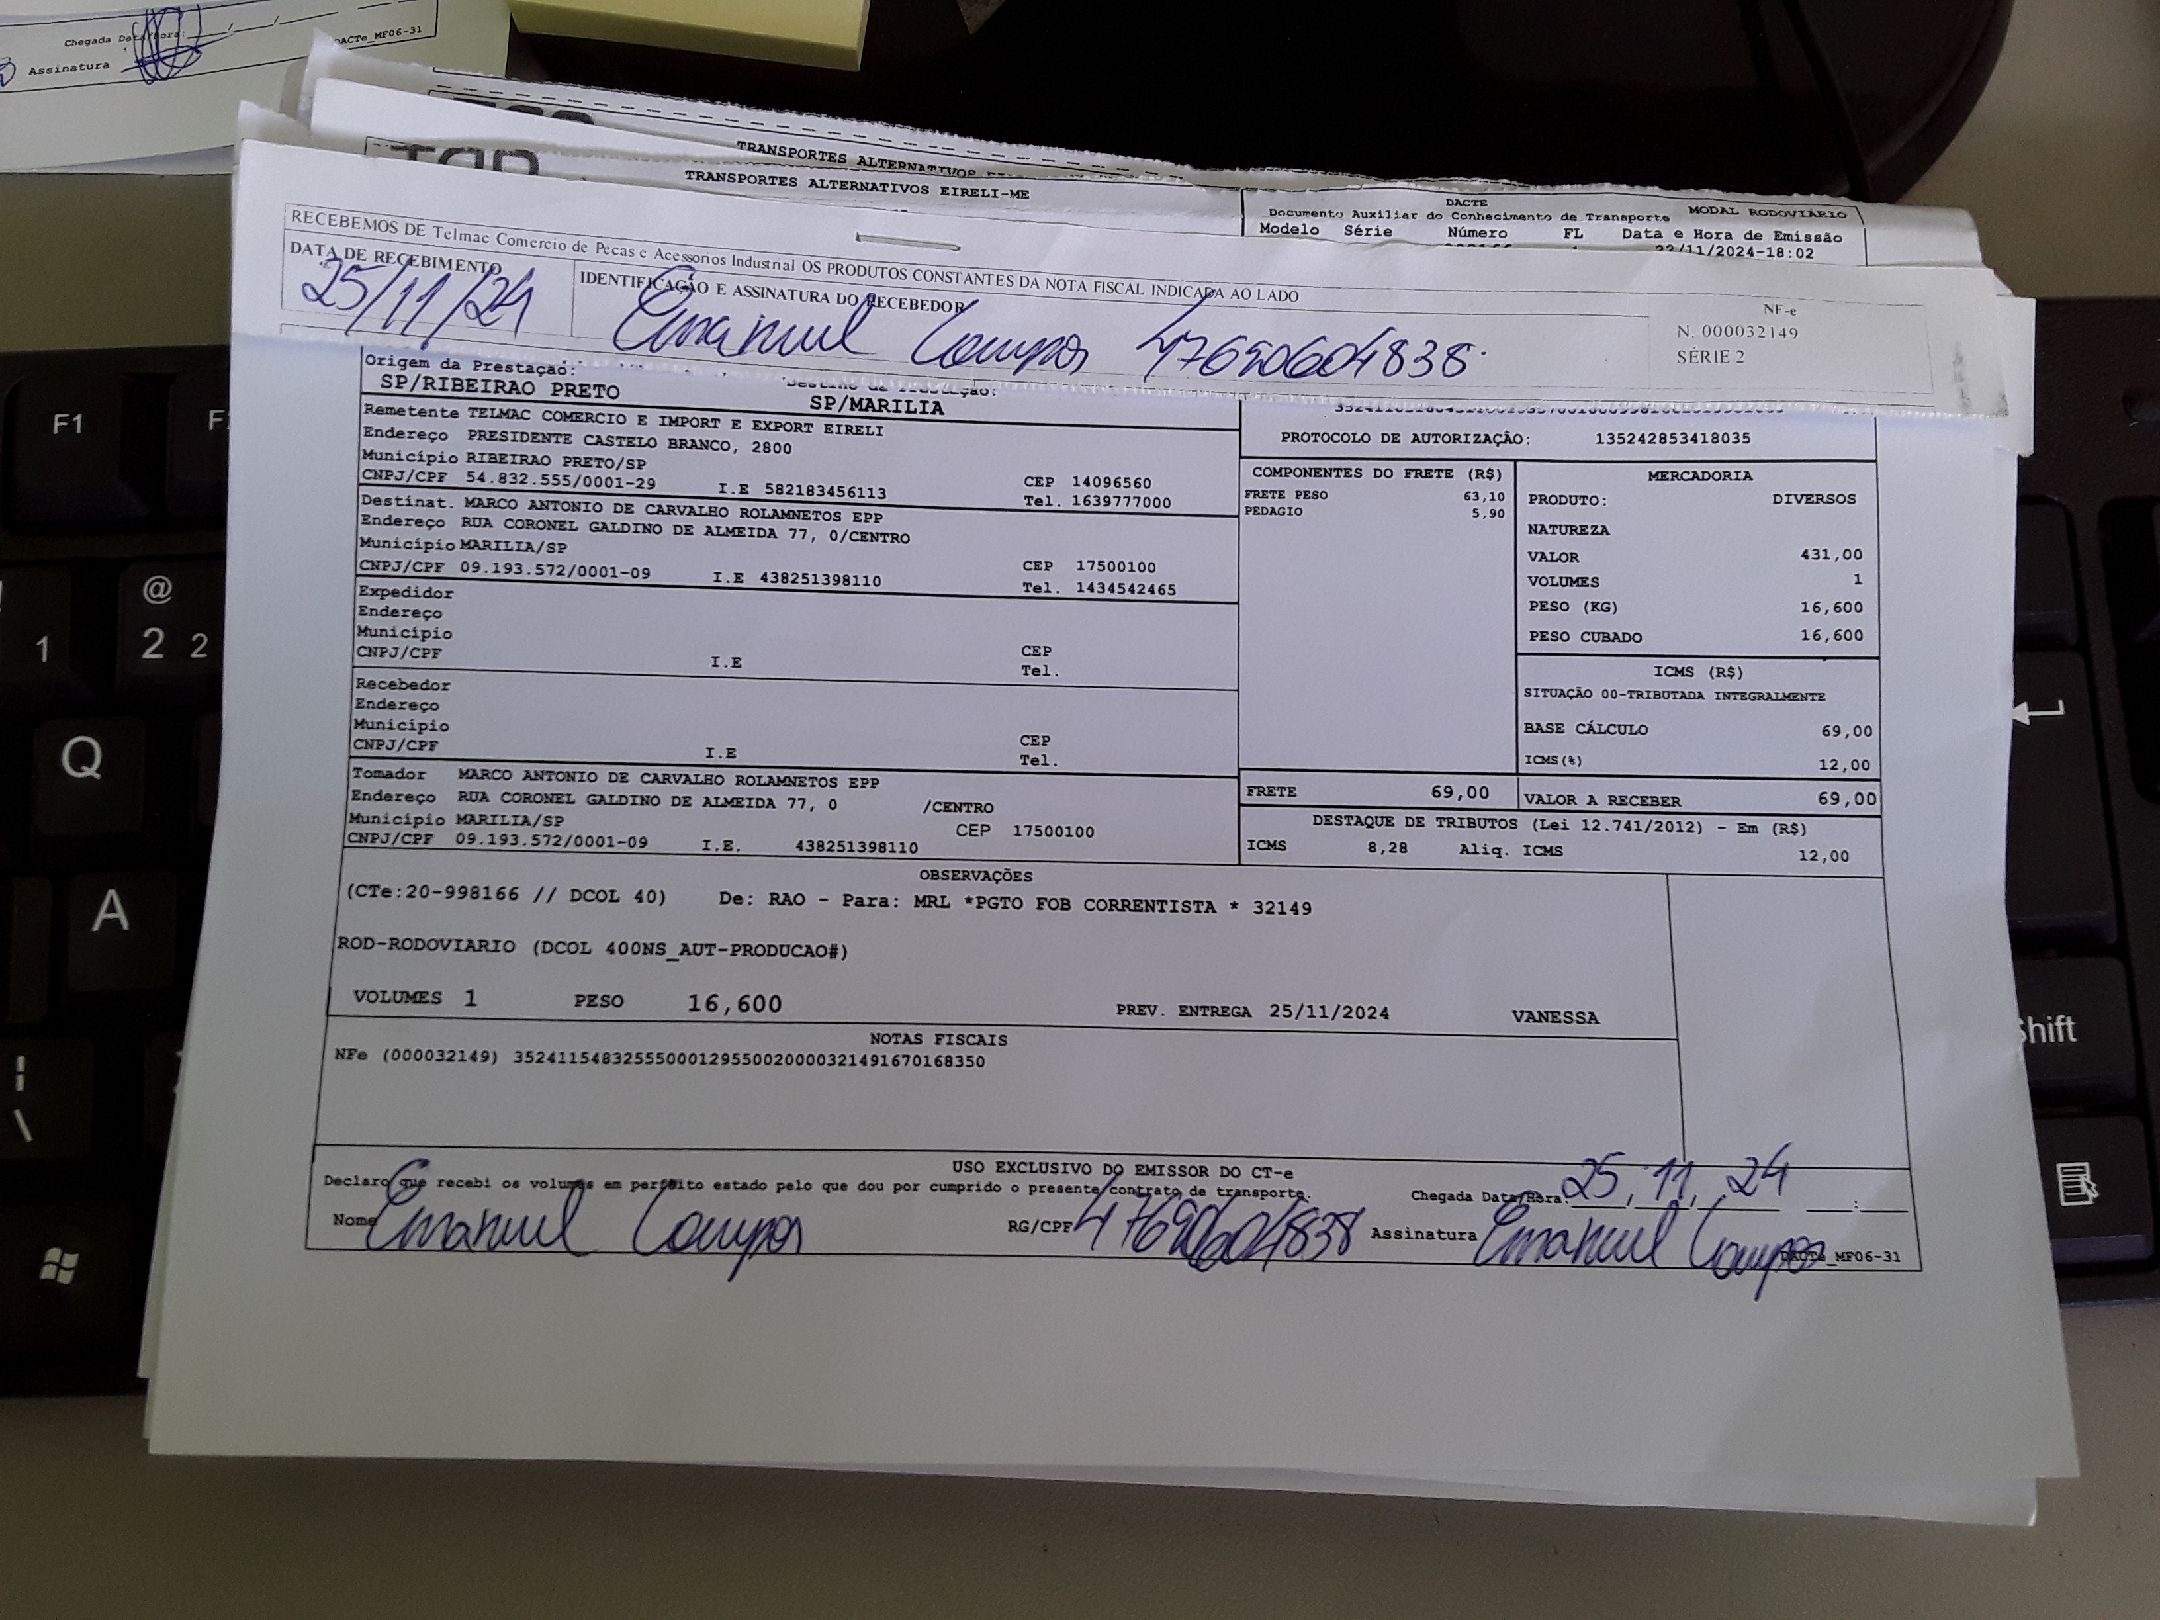 Chegada Data/Hora: / /
DACTe_MF06-31
Assinatura
TRANSPORTES ALTERNATIVOS
TRANSPORTES ALTERNATIVOS EIRELI-ME
DACTE
MODAL RODOVIÁRIO
Documento Auxiliar do Conhecimento de Transporte
Modelo Série Número FL Data e Hora de Emissão
22/11/2024-18:02
RECEBEMOS DE Telmac Comercio de Pecas e Acessorios Industrial OS PRODUTOS CONSTANTES DA NOTA FISCAL INDICADA AO LADO
DATA DE RECEBIMENTO
25/11/24
IDENTIFICAÇÃO E ASSINATURA DO RECEBEDOR
Emanuel Campos 47690604838
NF-e
N. 000032149
SÉRIE 2
Origem da Prestação:
SP/RIBEIRAO PRETO
SP/MARILIA
Remetente TELMAC COMERCIO E IMPORT E EXPORT EIRELI
Endereço PRESIDENTE CASTELO BRANCO, 2800
Município RIBEIRAO PRETO/SP
CEP 14096560
CNPJ/CPF 54.832.555/0001-29 I.E 582183456113 Tel. 1639777000
Destinat. MARCO ANTONIO DE CARVALHO ROLAMNETOS EPP
Endereço RUA CORONEL GALDINO DE ALMEIDA 77, 0/CENTRO
Município MARILIA/SP
CEP 17500100
CNPJ/CPF 09.193.572/0001-09 I.E 438251398110 Tel. 1434542465
Expedidor
Endereço
Município
CEP
CNPJ/CPF I.E Tel.
Recebedor
Endereço
Município
CEP
CNPJ/CPF I.E Tel.
Tomador MARCO ANTONIO DE CARVALHO ROLAMNETOS EPP
Endereço RUA CORONEL GALDINO DE ALMEIDA 77, 0 /CENTRO
Município MARILIA/SP CEP 17500100
CNPJ/CPF 09.193.572/0001-09 I.E. 438251398110
PROTOCOLO DE AUTORIZAÇÃO: 135242853418035
COMPONENTES DO FRETE (R$)
FRETE PESO 63,10
PEDAGIO 5,90
MERCADORIA
PRODUTO: DIVERSOS
NATUREZA
VALOR 431,00
VOLUMES 1
PESO (KG) 16,600
PESO CUBADO 16,600
ICMS (R$)
SITUAÇÃO 00-TRIBUTADA INTEGRALMENTE
BASE CÁLCULO 69,00
ICMS(%) 12,00
FRETE 69,00
VALOR A RECEBER 69,00
DESTAQUE DE TRIBUTOS (Lei 12.741/2012) - Em (R$)
ICMS 8,28 Aliq. ICMS 12,00
OBSERVAÇÕES
(CTe:20-998166 // DCOL 40) De: RAO - Para: MRL *PGTO FOB CORRENTISTA * 32149
ROD-RODOVIARIO (DCOL 400NS_AUT-PRODUCAO#)
VOLUMES 1 PESO 16,600 PREV. ENTREGA 25/11/2024 VANESSA
NOTAS FISCAIS
NFe (000032149) 35241154832555000129550020000321491670168350
USO EXCLUSIVO DO EMISSOR DO CT-e
Declaro que recebi os volumes em perfeito estado pelo que dou por cumprido o presente contrato de transporte.
Chegada Data/Hora: 25/11/24 :
Nome Emanuel Campos RG/CPF 47690604838 Assinatura Emanuel Campos
DACTe_MF06-31
F1
@
1
2 2
Q
A
|
\
Shift